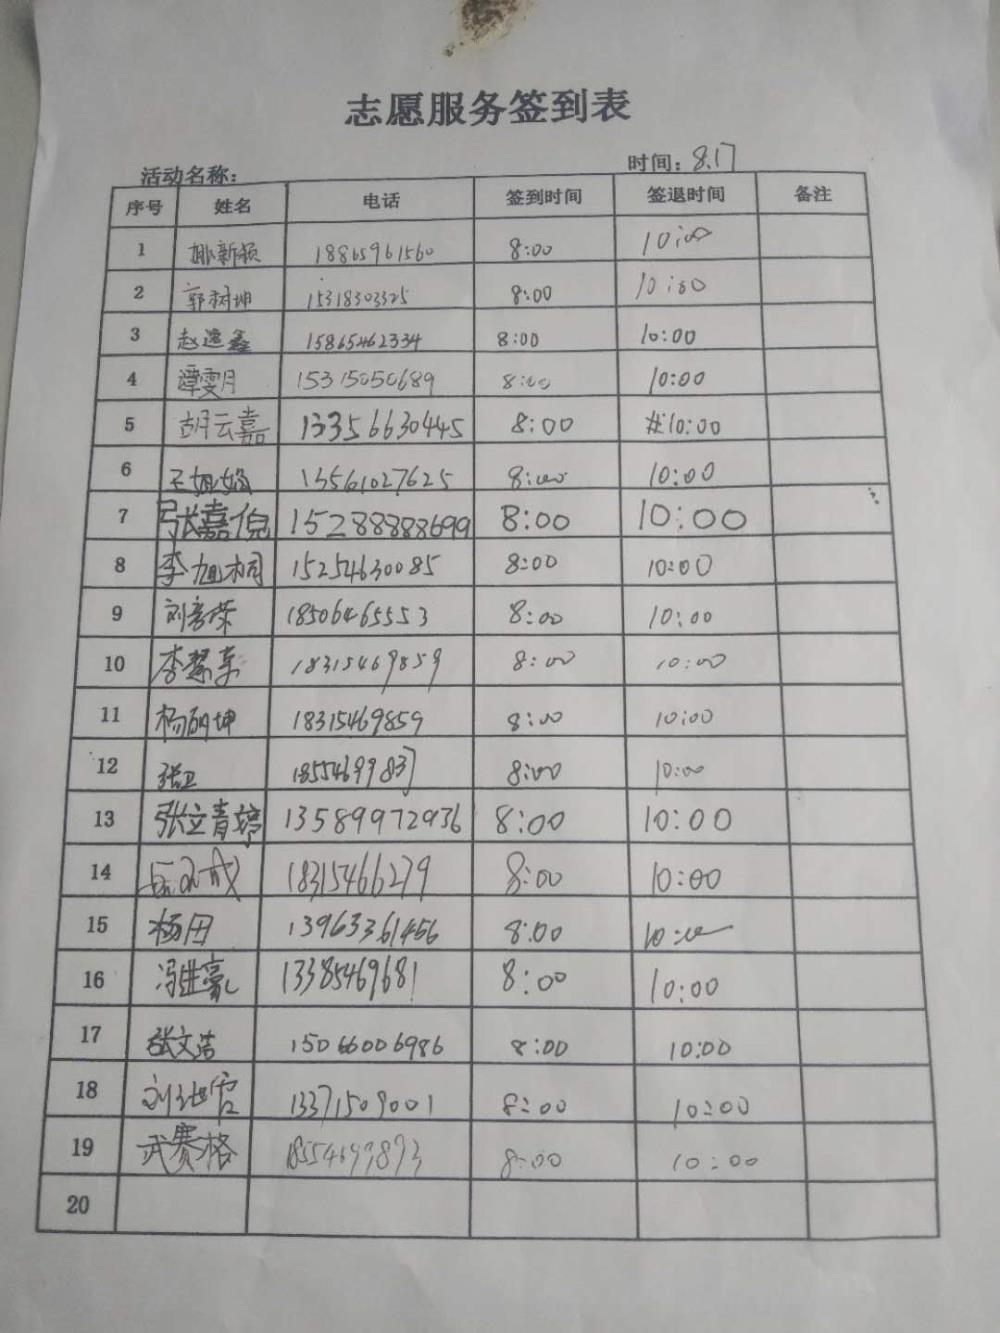 志愿服务签到表
活动名称： 时间：8.17
序号 姓名 电话 签到时间 签退时间 备注
1 18865961560 8:00 10:00
2 郭树坤 15318303325 8:00 10:00
3 赵逸鑫 15865462334 8:00 10:00
4 谭雯月 15315050689 8:00 10:00
5 胡云嘉 13356630445 8:00 10:00
6 13561027625 8:00 10:00
7 张嘉倪 15288888699 8:00 10:00
8 李旭桐 15254630085 8:00 10:00
9 刘彦荣 18506465553 8:00 10:00
10 18315469859 8:00 10:00
11 杨明坤 18315469859 8:00 10:00
12 张卫 18554699837 8:00 10:00
13 张立青婷 13589972936 8:00 10:00
14 18315466279 8:00 10:00
15 杨田 13963361456 8:00 10:00
16 冯继豪 13385469681 8:00 10:00
17 张文洁 15066006986 8:00 10:00
18 13371509001 8:00 10:00
19 武赛格 18554697873 8:00 10:00
20